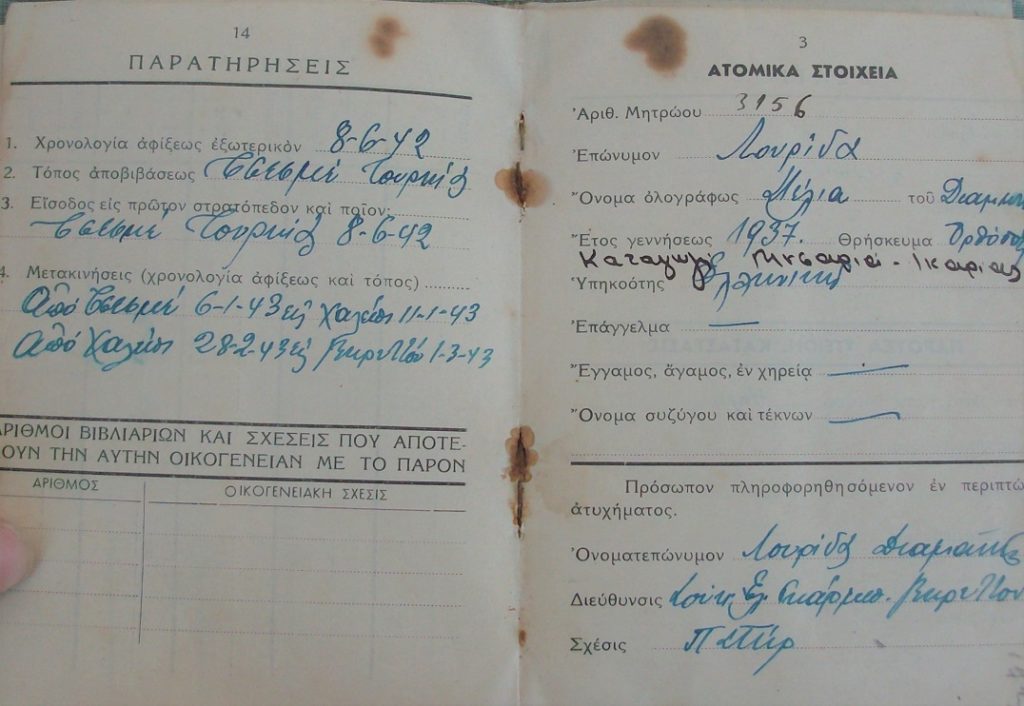 14
ΠΑΡΑΤΗΡΗΣΕΙΣ
1. Χρονολογία ἀφίξεως ἐξωτερικὸν 8-6-42
2. Τόπος ἀποβιβάσεως Τσεσμέ Τουρκίας
3. Εἴσοδος εἰς πρῶτον στρατόπεδον καὶ ποῖον:
Τσεσμέ Τουρκίας 8-6-42
4. Μετακινήσεις (χρονολογία ἀφίξεως καὶ τόπος)
Από Τσεσμέ 6-1-43 εἰς Χαλέπι 11-1-43
Από Χαλέπι 28-2-43 εἰς 1-3-43
ΑΡΙΘΜΟΙ ΒΙΒΛΙΑΡΙΩΝ ΚΑΙ ΣΧΕΣΕΙΣ ΠΟΥ ΑΠΟΤΕ-
ΟΥΝ ΤΗΝ ΑΥΤΗΝ ΟΙΚΟΓΕΝΕΙΑΝ ΜΕ ΤΟ ΠΑΡΟΝ
ΑΡΙΘΜΟΣ ΟΙΚΟΓΕΝΕΙΑΚΗ ΣΧΕΣΙΣ
3
ΑΤΟΜΙΚΑ ΣΤΟΙΧΕΙΑ
Ἀριθ. Μητρώου 3156
Ἐπώνυμον Λουρίδα
Ὄνομα ὁλογράφως Μέλια τοῦ Διαμαν
Ἔτος γεννήσεως 1937. Θρήσκευμα Ὀρθόδοξ
Καταγωγή Μεσαριά - Ικαρίας
Ὑπηκοότης Ελληνική
Ἐπάγγελμα —
Ἔγγαμος, ἄγαμος, ἐν χηρείᾳ —
Ὄνομα συζύγου καὶ τέκνων —
Πρόσωπον πληροφορηθησόμενον ἐν περιπτώ
ἀτυχήματος.
Ὀνοματεπώνυμον Λουρίδας
Διεύθυνσις
Σχέσις Πατήρ